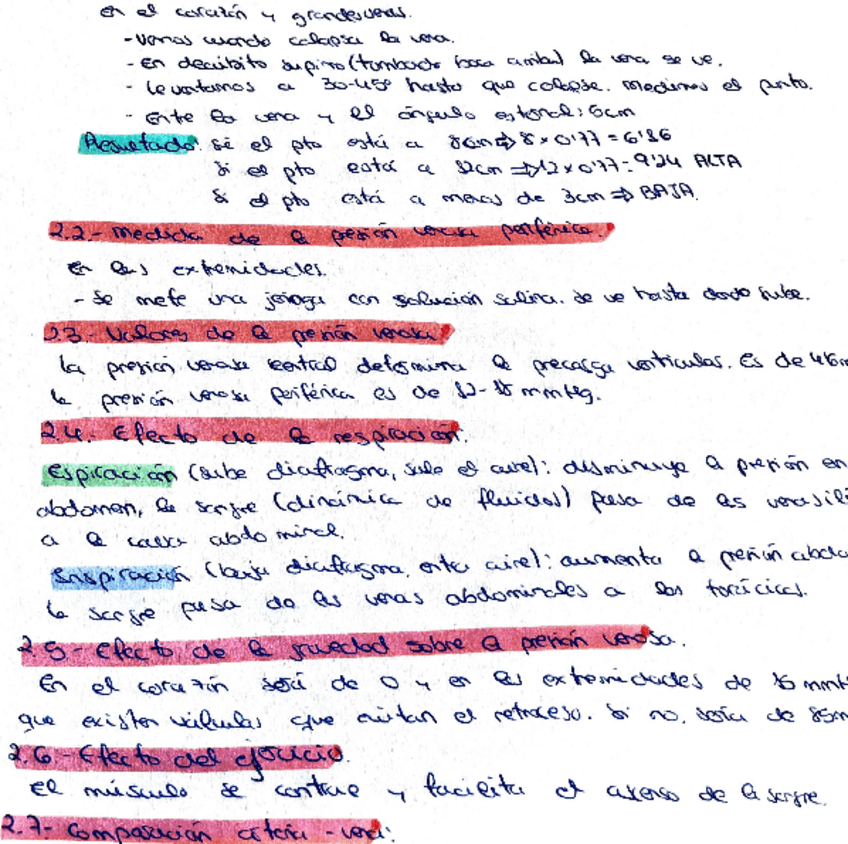 en el corazón y grandes venas.
- Vemos cuando colapsa la vena.
- En decúbito supino (tumbado boca arriba) la vena se ve.
- Levantamos a 30-45º hasta que colapse. Medimos el punto.
- Entre la vena y el ángulo esternal: 5cm
Resultado: si el pto está a 8cm ⇒ 8 x 0'77 = 6'16
si el pto está a 12cm ⇒ 12 x 0'77 = 9'24 ALTA
si el pto está a menos de 3cm ⇒ BAJA.
2.2.- Medida de la presión venosa periférica.
En las extremidades.
- Se mete una jeringa con solución salina. Se ve hasta donde sube.
2.3.- Valores de la presión venosa
La presión venosa central determina la precarga ventricular. Es de
la presión venosa periférica es de 12-15 mmHg.
2.4.- Efecto de la respiración.
Espiración (sube diafragma, sale el aire): disminuye la presión en
abdomen, la sangre (dinámica de fluidos) pasa de las venas
a la cava abdominal.
Inspiración (baja diafragma, entra aire): aumenta la presión
la sangre pasa de las venas abdominales a las torácicas.
2.5- Efecto de la gravedad sobre la presión venosa.
En el corazón será de 0 y en las extremidades de 15
que existen válvulas que evitan el retroceso. Si no, sería de
2.6.- Efecto del ejercicio.
El músculo se contrae y facilita el ascenso de la sangre.
2.7- Comparación arteria - vena: